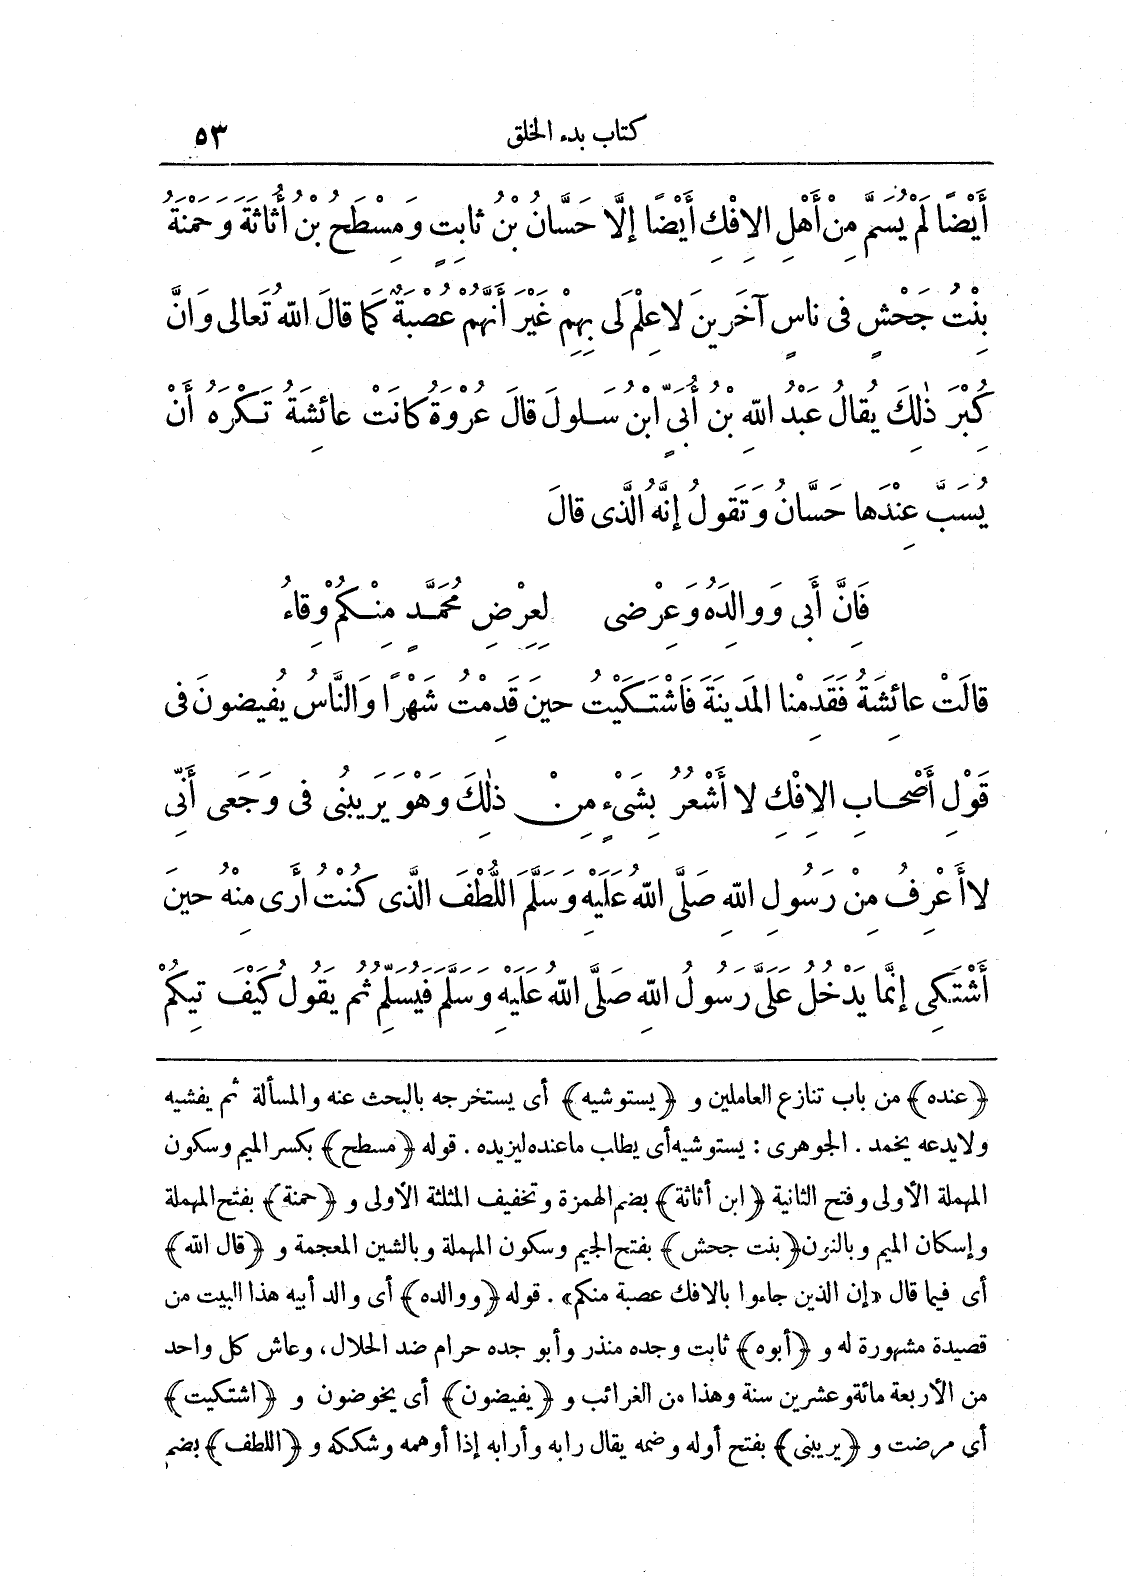 كتاب بدء الخلق ٥٣
أَيْضًا لَمْ يُسَمَّ مِنْ أَهْلِ الإِفْكِ أَيْضًا إِلَّا حَسَّانُ بْنُ ثابِتٍ وَمِسْطَحُ بْنُ أُثاثَةَ وَحَمْنَةُ
بِنْتُ جَحْشٍ فى ناسٍ آخَرينَ لاعِلْمَ لى بِهِمْ غَيْرَ أَنَّهُمْ عُصْبَةٌ كَما قالَ اللهُ تَعالى وَانَّ
كُبْرَ ذٰلِكَ يُقالُ عَبْدُ اللهِ بْنُ أُبَيّ ابْنُ سَلولَ قالَ عُرْوَةُ كانَتْ عائِشَةُ تَكْرَهُ أَنْ
يُسَبَّ عِنْدَها حَسَّانُ وَتَقولُ إِنَّهُ الَّذى قالَ
فَاِنَّ أَبى وَوالِدَهُ وَعِرْضى لِعِرْضِ مُحَمَّدٍ مِنْكُمْ وِقاءُ
قالَتْ عائِشَةُ فَقَدِمْنا المَدينَةَ فَاشْتَكَيْتُ حينَ قَدِمْتُ شَهْرًا وَالنَّاسُ يُفيضونَ فى
قَوْلِ أَصْحابِ الإِفْكِ لا أَشْعُرُ بِشَىْءٍ مِنْ ذٰلِكَ وَهْوَ يَريبُنى فى وَجَعى أَنّى
لا أَعْرِفُ مِنْ رَسُولِ اللهِ صَلَّى اللهُ عَلَيْهِ وَسَلَّمَ اللُّطْفَ الَّذى كُنْتُ أَرى مِنْهُ حينَ
أَشْتَكِى إِنَّما يَدْخُلُ عَلَىَّ رَسُولُ اللهِ صَلَّى اللهُ عَلَيْهِ وَسَلَّمَ فَيُسَلِّمُ ثُم يَقُولُ كَيْفَ تِيكُمْ
﴿عنده﴾ من باب تنازع العاملين و ﴿يستوشيه﴾ أى يستخرجه بالبحث عنه والمسألة ثم يفشيه
ولايدعه يخمد . الجوهرى : يستوشيه أى يطلب ماعنده ليزيده . قوله ﴿مسطح﴾ بكسر الميم وسكون
المهملة الأولى وفتح الثانية ﴿ابن أثاثة﴾ بضم الهمزة وتخفيف المثلثة الأولى و ﴿حمنة﴾ بفتح المهملة
وإسكان الميم وبالنون ﴿بنت جحش﴾ بفتح الجيم وسكون المهملة وبالشين المعجمة و ﴿قال الله﴾
أى فيما قال «إن الذين جاءوا بالافك عصبة منكم» . قوله ﴿ووالده﴾ أى والد أبيه هذا البيت من
قصيدة مشهورة له و ﴿أبوه﴾ ثابت وجده منذر وأبو جده حرام ضد الحلال، وعاش كل واحد
من الأربعة مائة وعشرين سنة وهذا من الغرائب و ﴿يفيضون﴾ أى يخوضون و ﴿اشتكيت﴾
أى مرضت و ﴿يريبنى﴾ بفتح أوله وضمه يقال رابه وأرابه إذا أوهمه وشككه و ﴿اللطف﴾ بضم